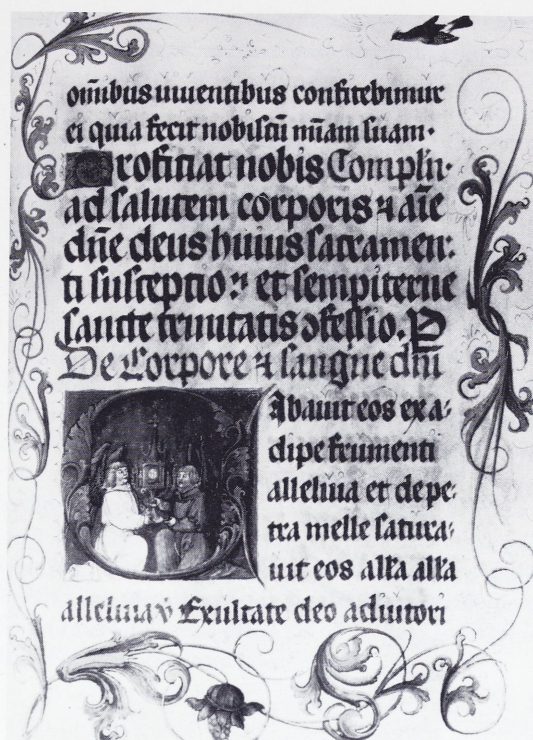 om̄ibus uiuentibus confitebimur
ei quia fecit nobiscū mi͞am suam·
Proficiat nobis Complin·
ad salutem corporis ⁊ ai͞e
dn̄e deus huius sacramen:
ti susceptio: et sempiterne
sancte trinitatis ↄfessio. P
De Corpore ⁊ sangui͞e dn̄i
Cibauit eos ex a:
dipe frumenti
alleluia et de pe:
tra melle satura:
uit eos all'a all'a
alleluia v̄ Exultate deo adiutori